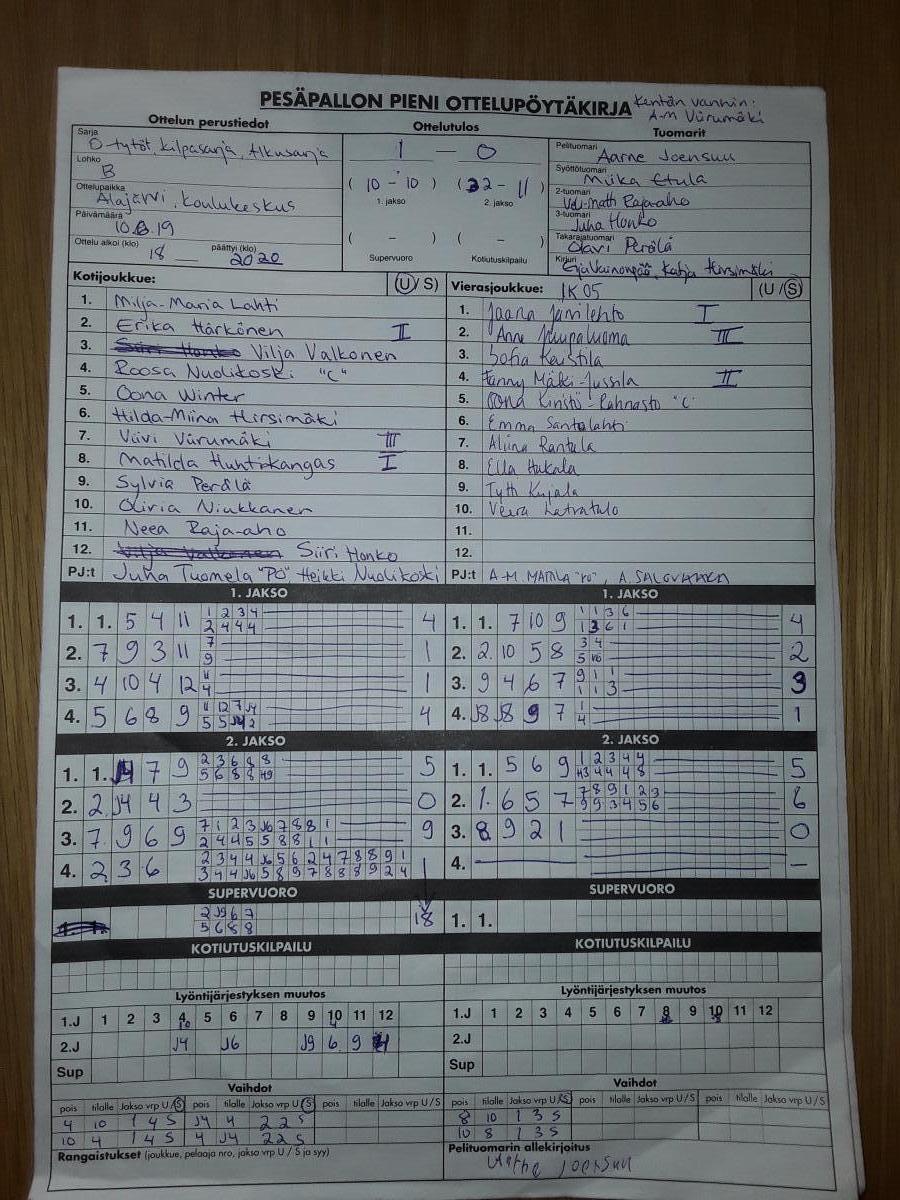 PESÄPALLON PIENI OTTELUPÖYTÄKIRJA
Kentän vanhin:
A-M Viirumäki
Ottelun perustiedot
Ottelutulos
Tuomarit
Sarja
D-tytöt, kilpasarja, alkusarja
Lohko
B
Ottelupaikka
Alajärvi, koulukeskus
Päivämäärä
10.8.19
Ottelu alkoi (klo) 18 päättyi (klo) 2020
1 — 0
( 10 - 10 ) ( 22 - 11 )
1. jakso 2. jakso
( - ) ( - )
Supervuoro Kotiutuskilpailu
Pelituomari Aarne Joensuu
Syöttötuomari Miika Etula
2-tuomari Raja-aho
3-tuomari Juha Honko
Takarajatuomari Olavi Perälä
Kirjuri Katja Hirsimäki
Kotijoukkue: (U/S)
1. Milja-Maria Lahti
2. Erika Härkönen II
3. Siiri Honko Vilja Valkonen
4. Roosa Nuolikoski "C"
5. Oona Winter
6. Hilda-Miina Hirsimäki
7. Viivi Viirumäki III
8. Matilda Huhtikangas I
9. Sylvia Perälä
10. Olivia Niukkanen
11. Neea Raja-aho
12. Vilja Valkonen Siiri Honko
PJ:t Juha Tuomela "PO" Heikki Nuolikoski
Vierasjoukkue: IK 05 (U/S)
1. Jaana Järvilehto I
2. Anne III
3. Sofia
4. Fanny Mäki-Jussila II
5. Oona "C"
6. Emma Santalahti
7. Aliina Rantala
8. Ella Hakala
9. Tytti Kujala
10. Veera Latvatalo
11.
12.
PJ:t A-M. MATILA "PO", A.
1. JAKSO
1. 1. 5 4 11 4
1 2 3 4
2 4 4 4
2. 7 9 3 11 1
7
9
3. 4 10 4 12 1
11
4
4. 5 6 8 9 4
1. JAKSO
1. 1. 7 10 9 4
1 1 3 6
1 3 6 1
2. 2. 10 5 8 2
3 4
3. 9 4 6 7 3
9 1 1
1 1 3
4. J8 J8 9 7 1
1
4
2. JAKSO
1. 1. J4 7 9 5
2 3 6 8 8
2. 2. J4 4 3 0
3. 7. 9 6 9 9
7 1 2 3 J6 7 8 8 1
2 4 4 5 5 8 8 1 1
4. 2 3 6
2 3 4 4 J6 5 6 2 4 7 8 8 9 1
3 4 4 J6 5 8 9 7 8 8 8 9 2 4
2. JAKSO
1. 1. 5 6 9 5
1 2 3 4 4
2. 1. 6 5 7 6
7 8 9 1 2 3
9 9 3 4 5 6
3. 8 9 2 1 0
4. —
SUPERVUORO
2 J9 6 7
5 6 8 8
18
SUPERVUORO
1. 1.
KOTIUTUSKILPAILU
KOTIUTUSKILPAILU
Lyöntijärjestyksen muutos
1.J 1 2 3 4 5 6 7 8 9 10 11 12
10 4
2.J J4 J6 J9 6 9
Sup
Lyöntijärjestyksen muutos
1.J 1 2 3 4 5 6 7 8 9 10 11 12
2.J
Sup
Vaihdot
pois tilalle Jakso vrp U/S pois tilalle Jakso vrp U/S pois tilalle Jakso vrp U/S
4 10 1 4 S J4 4 2 2 S
10 4 1 4 S 4 J4 2 2 S
Vaihdot
pois tilalle Jakso vrp U/S pois tilalle Jakso vrp U/S pois tilalle Jakso vrp U/S
8 10 1 3 S
10 8 1 3 S
Rangaistukset (joukkue, pelaaja nro, jakso vrp U / S ja syy)
Pelituomarin allekirjoitus
Aarne Joensuu